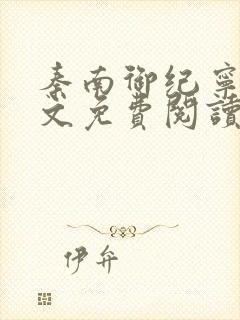 秦南御纪寧
文免費閱讀
伊弁